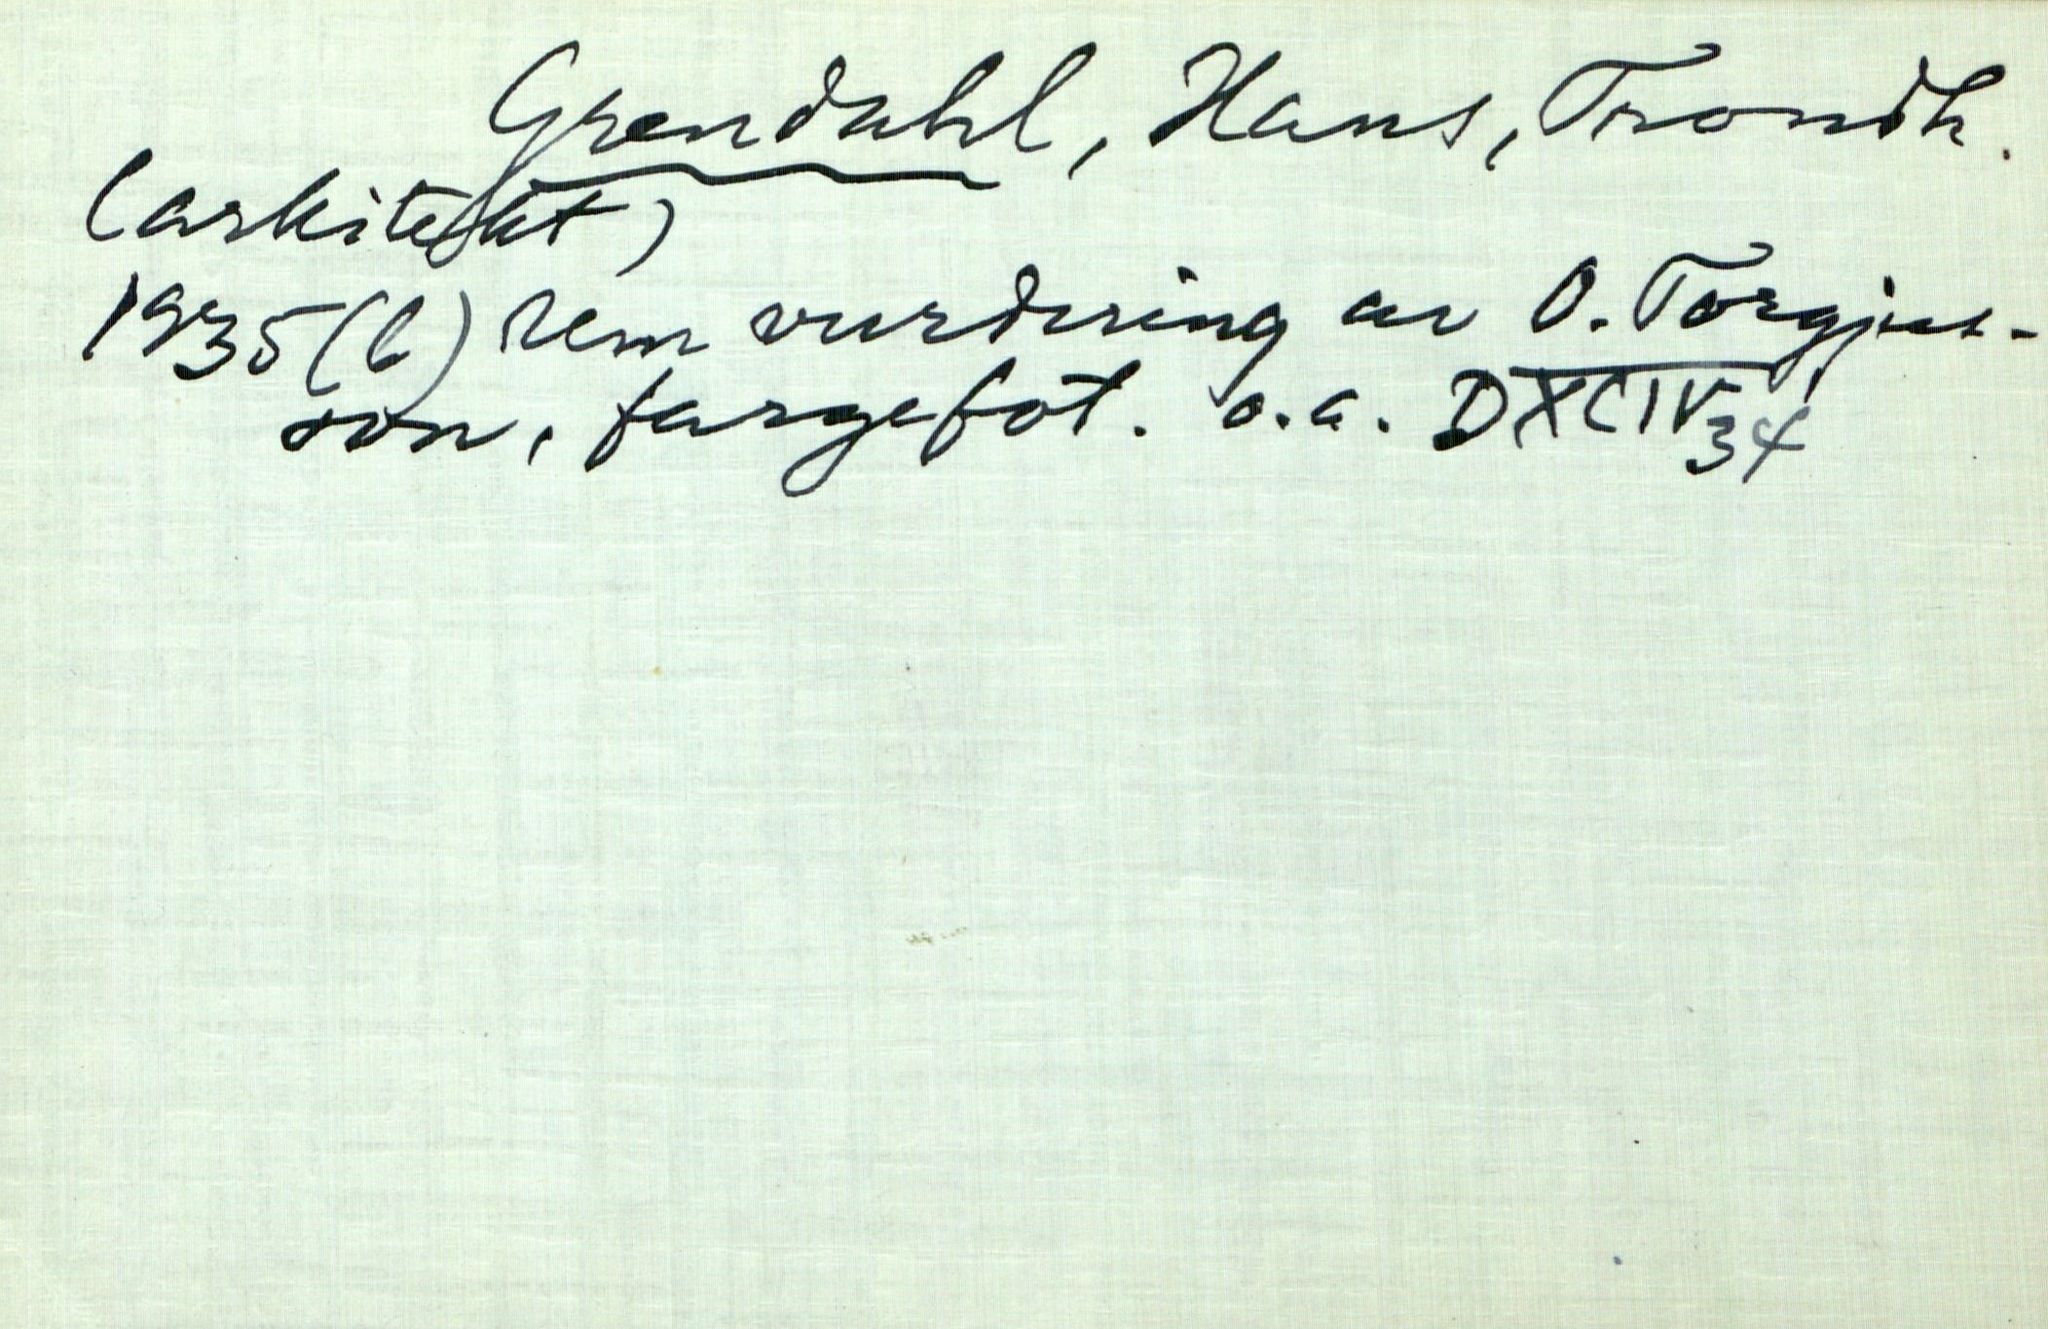 Grendahl, Hans, Trondh.
(arkitekt)
1935(b) Um vurdering av O. Torgjus-
son, fargefot. o.a. DXCIV 34